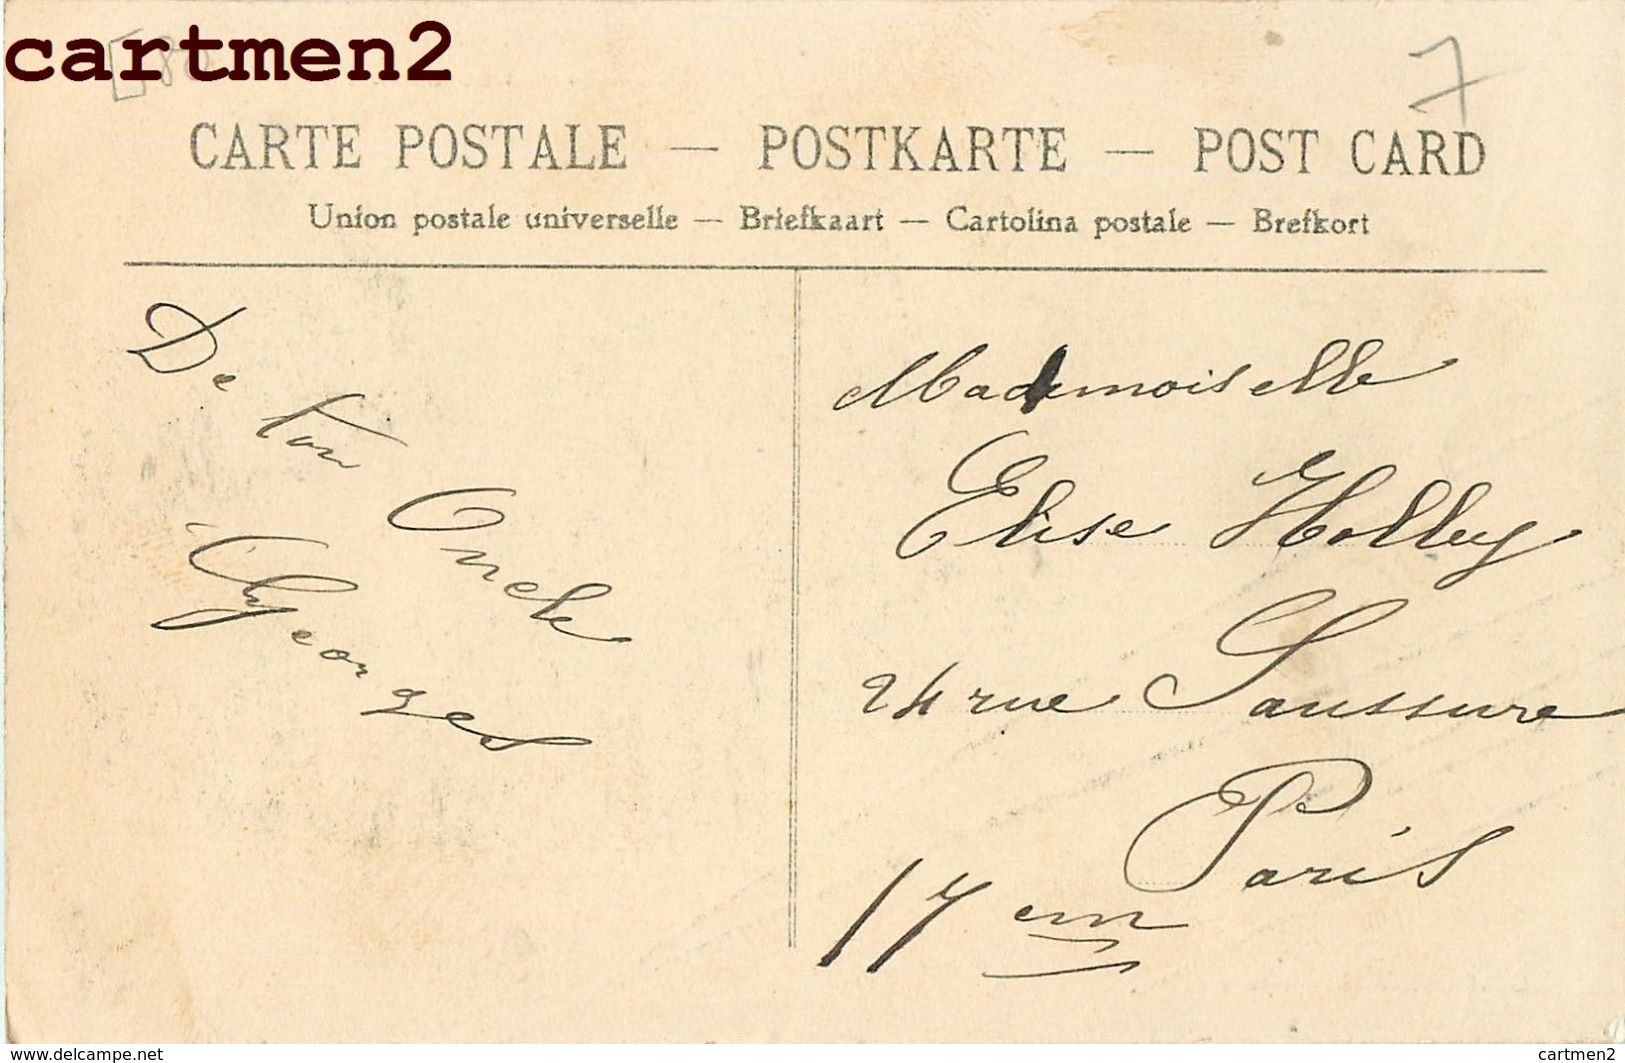 cartmen2
7
CARTE POSTALE — POSTKARTE — POST CARD
Union postale universelle — Briefkaart — Cartolina postale — Brefkort
De
ton
Oncle
Georges
Mademoiselle
Elise Holley
24 rue Saussure
Paris
17 em
www.delcampe.net
cartmen2